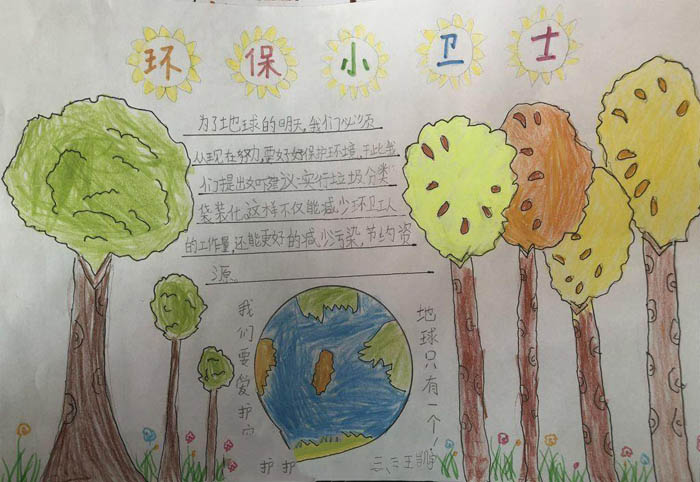 环保小卫士
为了地球的明天,我们必须
从现在努力,要好好保护环境,于此我
们提出如下建议:实行垃圾分类
袋装化,这样不仅能减少环卫工人
的工作量,还能更好的减少污染,节约资
源。
我们要爱护
护护
地球只有一个!
三、三王